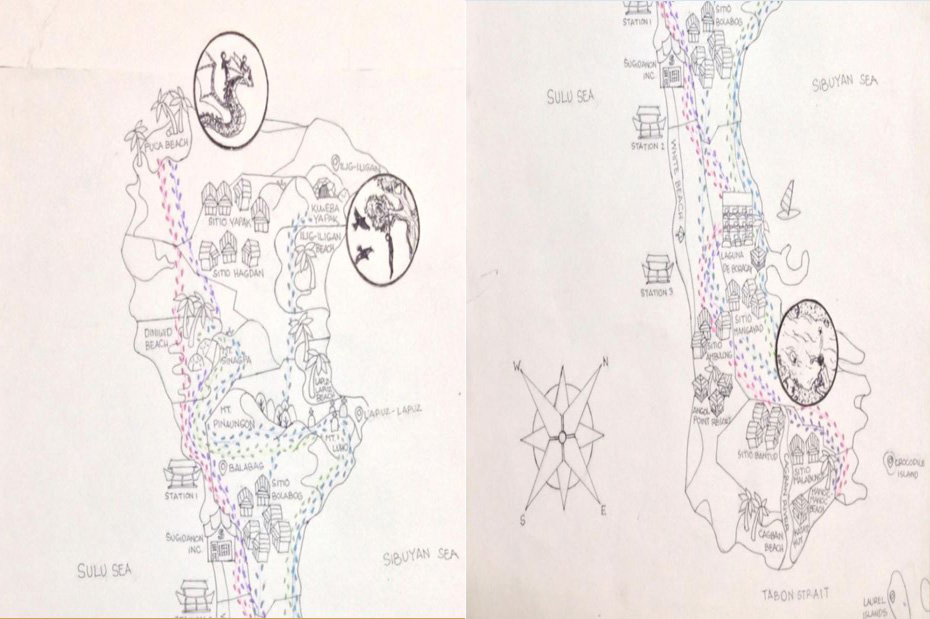 PUCA BEACH
ILIG-ILIGAN
KUWEBA
YAPAK
SITIO YAPAK
ILIG-ILIGAN
BEACH
SITIO HAGDAN
DINIWID
BEACH
MT.
LAPUZ-
LAPUZ
BEACH
MT.
PINAUNGON
LAPUZ-LAPUZ
MT.
LUHO
BALABAG
STATION 1
SITIO
BOLABOS
SUGIDANON
INC.
SULU SEA
SIBUYAN SEA
STATION 1
SITIO
BOLABOS
SUGIDANON
INC.
SULU SEA
SIBUYAN SEA
STATION 2
WHITE BEACH
LAGUNA
DE BORACAY
STATION 3
SITIO
MANGAYAD
SITIO
AMBULONG
W
N
S
E
ANGOL
POINT RESORT
SITIO BANTUD
SITIO
MALABUNOT
CROCODILE
ISLAND
MANOC-
MANOC
BEACH
CAGBAN
BEACH
TABON STRAIT
LAUREL
ISLANDS